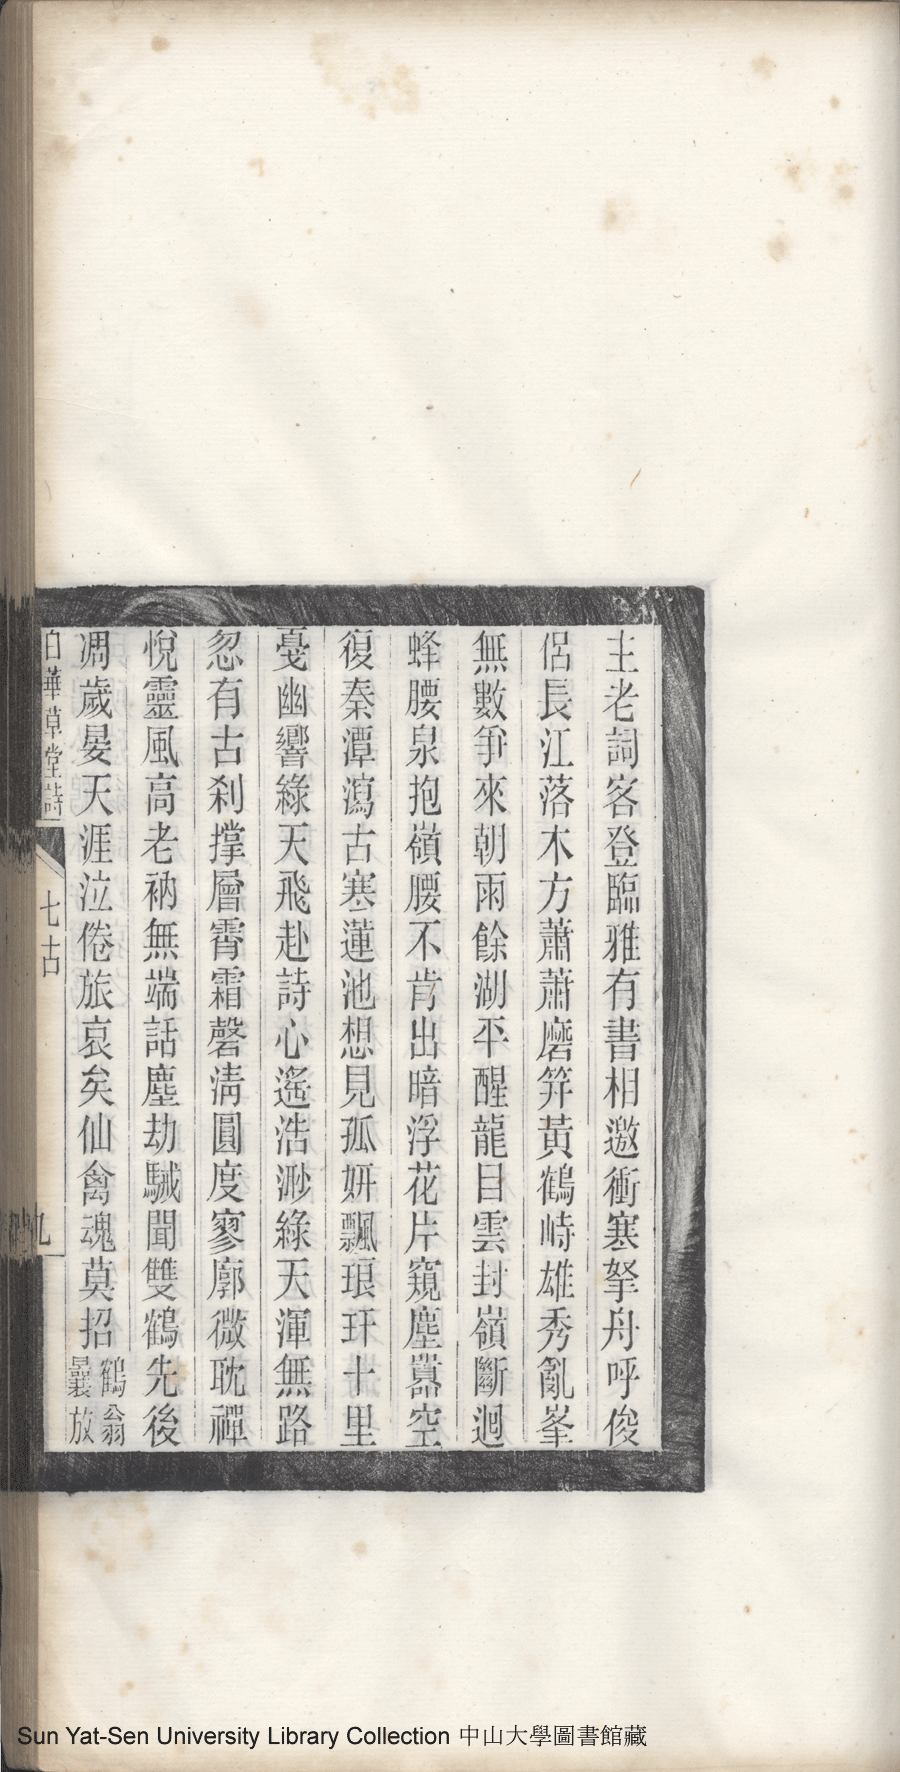 主老詞客登臨雅有書相邀衝寒拏舟呼俊
侶長江落木方蕭蕭磨笄黃鶴峙雄秀亂峯
無數爭來朝雨餘湖平醒龍目雲封嶺斷迴
蜂腰泉抱嶺腰不肯出暗浮花片窺塵囂空
復秦潭瀉古寒蓮池想見孤妍飄琅玕十里
戞幽響綠天飛赴詩心遙浩渺綠天渾無路
忽有古刹撐層霄霜磬淸圓度寥廓微耽禪
悅靈風高老衲無端話塵劫駴聞雙鶴先後
凋歲晏天涯泣倦旅哀矣仙禽魂莫招鶴翁
曩放
白華草堂詩
七古
九
Sun Yat-Sen University Library Collection 中山大學圖書館藏